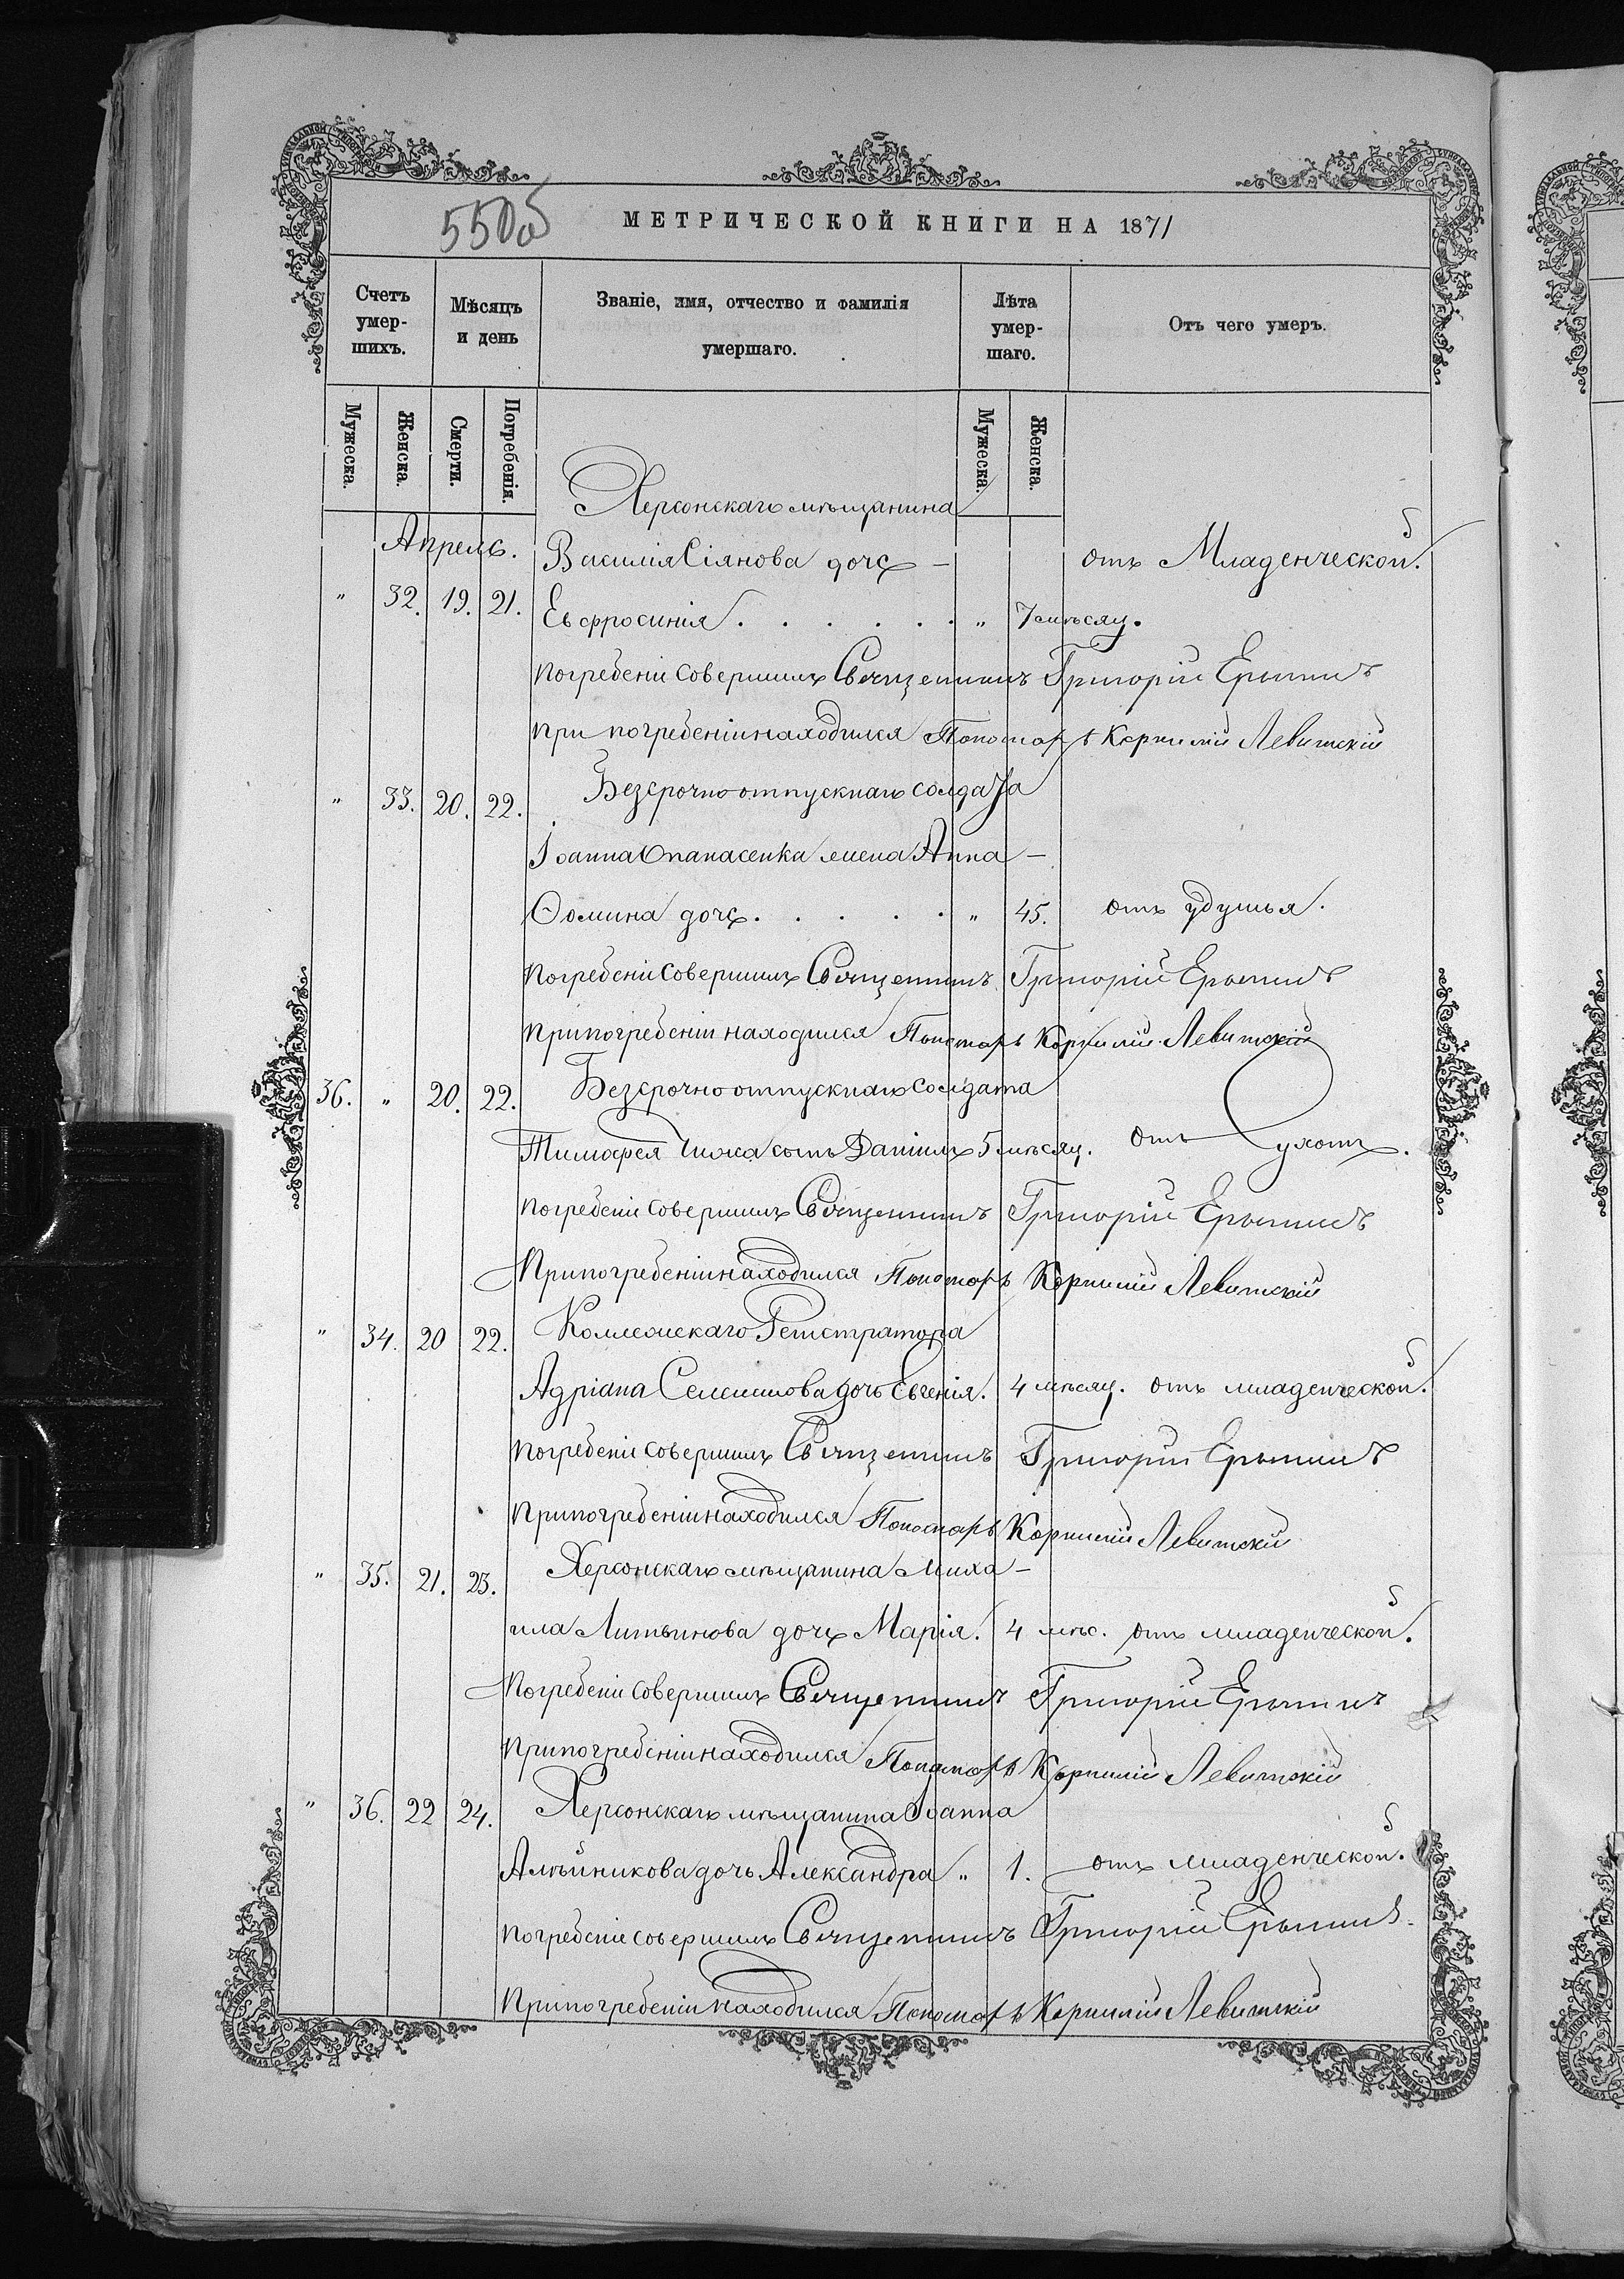 550об
МЕТРИЧЕСКОЙ КНИГИ НА 1871
Счетъ умершихъ.
Мѣсяцъ и день
Званіе, имя, отчество и фамилія умершаго.
Лѣта умершаго.
Отъ чего умеръ.
Мужеска.
Женска.
Смерти.
Погребенія.
Мужеска.
Женска.
Херсонскаго мѣщанина
Апрель. Василія Сіянова дочь - отъ Младенческой.
" 32. 19. 21. Евфросинія . . . . . . " 7 мѣсяц.
Погребеніе совершилъ Священникъ Григорій
При погребеніи находился Пономарь Корнилій Левитскій
" 33. 20. 22. Безсрочно отпускнаго солдата
Іоанна Опанасенка жена Анна -
Ѳомина дочь . . . . . " 45. отъ удушья.
Погребеніе совершилъ Священникъ Григорій
При погребеніи находился Пономарь Корнилій Левитскій
36. " 20. 22. Безсрочно отпускнаго солдата
Тимофея Чижа сынъ Даніилъ 5 мѣсяц. отъ Сухотъ.
Погребеніе совершилъ Священникъ Григорій
При погребеніи находился Пономарь Корнилій Левитскій
" 34. 20 22. Коллежскаго Регистратора
Адріана дочь Евгенія. 4 мѣсяц. отъ младенческой.
Погребеніе совершилъ Священникъ Григорій
При погребеніи находился Пономарь Корнилій Левитскій
" 35. 21. 23. Херсонскаго мѣщанина Миха-
ила Литвинова дочь Марія. 4 мѣс. отъ младенческой.
Погребеніе совершилъ Священникъ Григорій
При погребеніи находился Пономарь Корнилій Левитскій
" 36. 22 24. Херсонскаго мѣщанина Іоанна
Алейникова дочь Александра " 1. отъ младенческой.
Погребеніе совершилъ Священникъ Григорій
При погребеніи находился Пономарь Корнилій Левитскій